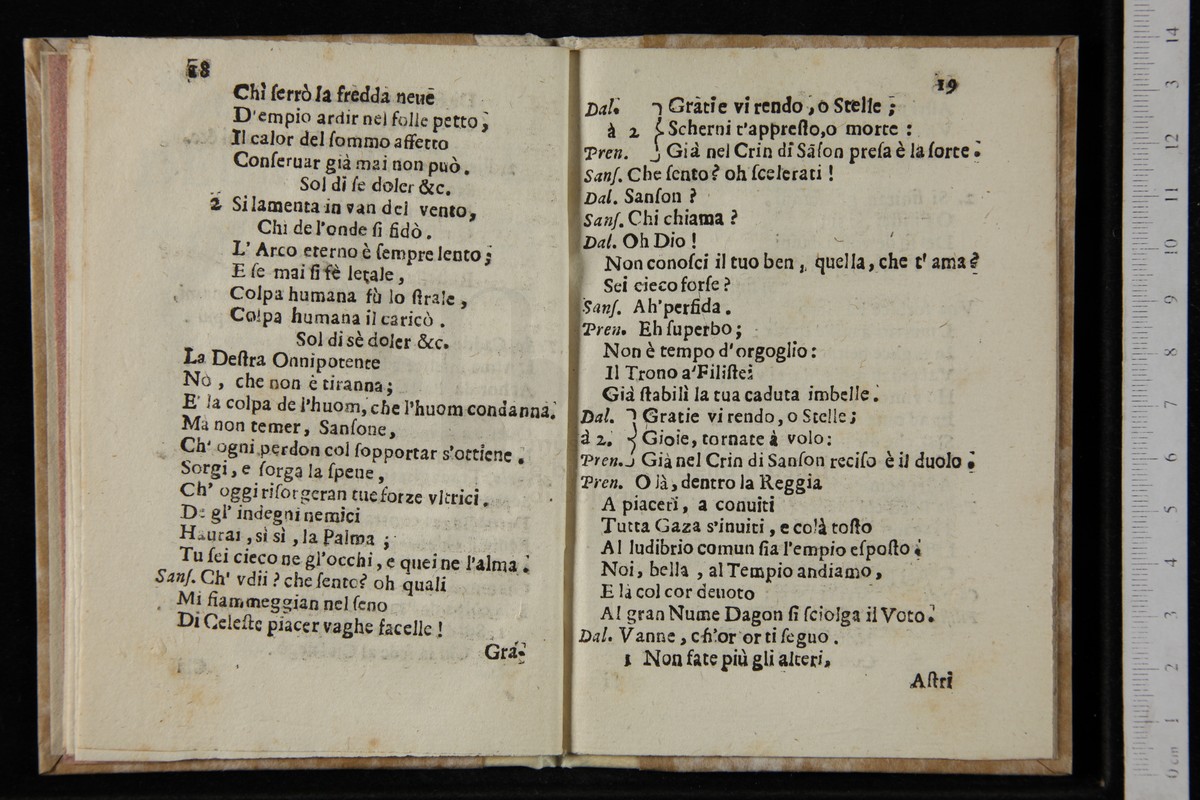 18
Chi ſerrò la fredda neuē
D'empio ardir nel folle petto;
Il calor del ſommo affetto
Conſeruar già mai non può.
Sol di ſe doler &c.
2 Si lamenta in van del vento,
Chi de l'onde ſi fidò.
L' Arco eterno è ſempre lento;
E ſe mai ſi fè letale,
Colpa humana fù lo ſtrale,
Colpa humana il caricò.
Sol di sè doler &c.
La Deſtra Onnipotente
Nò, che non è tiranna;
E' la colpa de l'huom, che l'huom condanna.
Ma non temer, Sanſone,
Ch' ogni perdon col ſopportar s'ottiene.
Sorgi, e ſorga la ſpene,
Ch' oggi riſorgeran tue forze vltrici.
De gl' indegni nemici
Haurai, sì sì, la Palma;
Tu ſei cieco ne gl'occhi, e quei ne l'alma.
Sanſ. Ch' vdii? che ſento? oh quali
Mi fiammeggian nel ſeno
Di Celeſte piacer vaghe facelle!
Gra-
19
Dal. Gratie vi rendo, o Stelle;
à 2 Scherni t'appreſto, o morte:
Pren. Già nel Crin di Sāſon preſa è la ſorte.
Sanſ. Che ſento? oh ſcelerati!
Dal. Sanſon?
Sanſ. Chi chiama?
Dal. Oh Dio!
Non conoſci il tuo ben, quella, che t' ama?
Sei cieco forſe?
Sanſ. Ah'perfida.
Pren. Eh ſuperbo;
Non è tempo d'orgoglio:
Il Trono a'Filiſtei
Già ſtabilì la tua caduta imbelle.
Dal. Gratie vi rendo, o Stelle;
à 2. Gioie, tornate à volo:
Pren. Già nel Crin di Sanſon reciſo è il duolo.
Pren. O là, dentro la Reggia
A piaceri, a conuiti
Tutta Gaza s'inuiti, e colà toſto
Al ludibrio comun ſia l'empio eſpoſto.
Noi, bella, al Tempio andiamo,
E là col cor deuoto
Al gran Nume Dagon ſi ſciolga il Voto.
Dal. Vanne, ch'or or ti ſeguo.
1 Non fate più gli alteri,
Aſtri